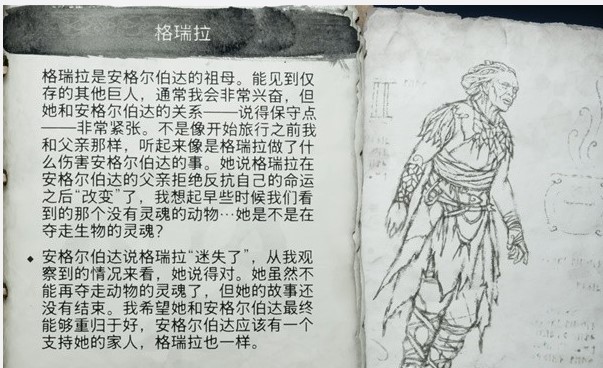 格瑞拉
格瑞拉是安格尔伯达的祖母。能见到仅
存的其他巨人，通常我会非常兴奋，但
她和安格尔伯达的关系——说得保守点
——非常紧张。不是像开始旅行之前我
和父亲那样，听起来像是格瑞拉做了什
么伤害安格尔伯达的事。她说格瑞拉在
安格尔伯达的父亲拒绝反抗自己的命运
之后“改变”了，我想起早些时候我们看
到的那个没有灵魂的动物…她是不是在
夺走生物的灵魂？
◆ 安格尔伯达说格瑞拉“迷失了”，从我观
察到的情况来看，她说得对。她虽然不
能再夺走动物的灵魂了，但她的故事还
没有结束。我希望她和安格尔伯达最终
能够重归于好，安格尔伯达应该有一个
支持她的家人，格瑞拉也一样。